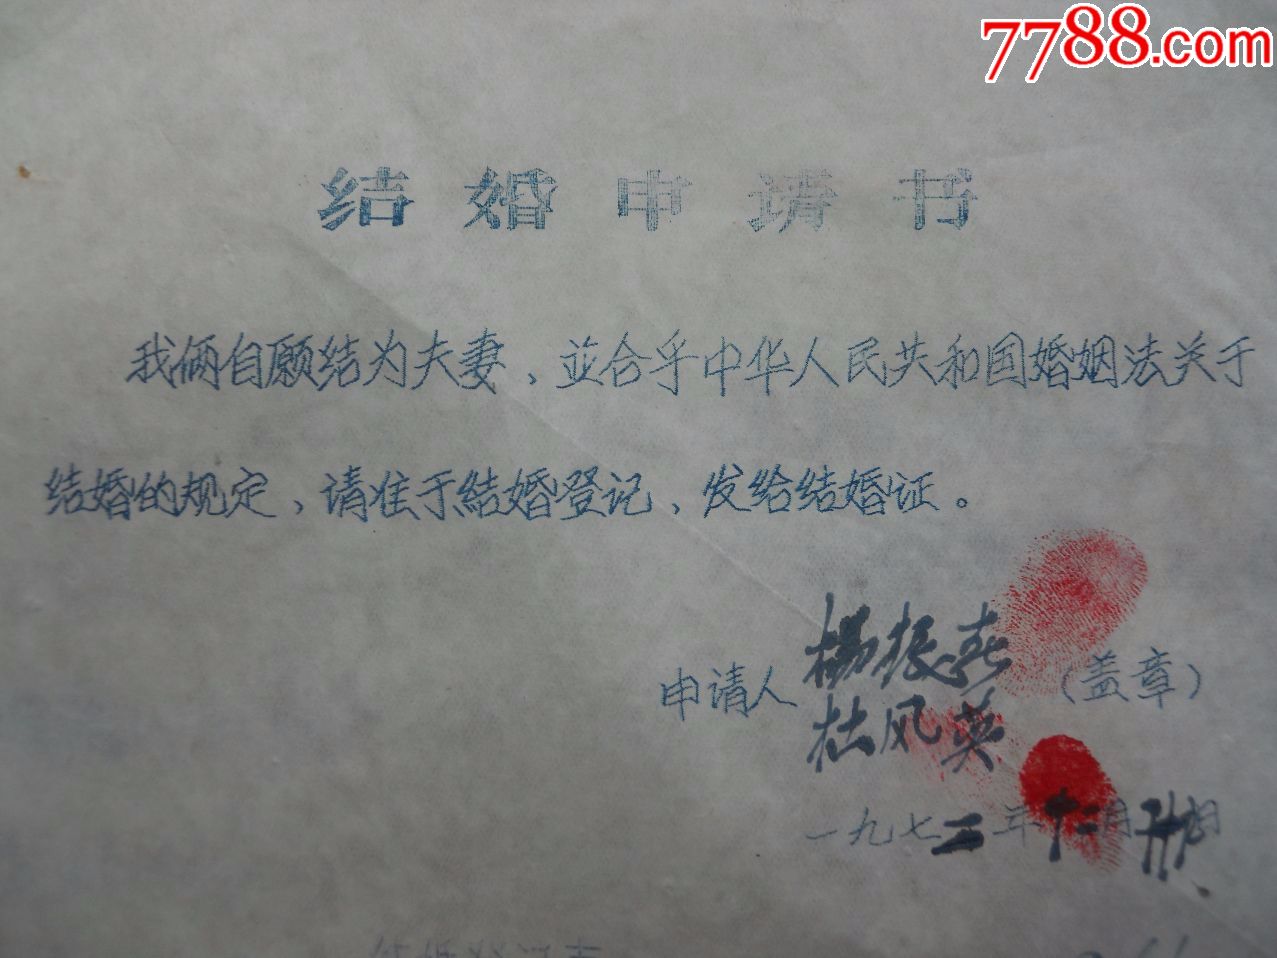 7788.com
结婚申请书
我俩自愿结为夫妻，並合乎中华人民共和国婚姻法关于
结婚的规定，请准于結婚登记，发给结婚证。
申请人 楊振春 （盖章）
杜风英
一九七二年十二月 日